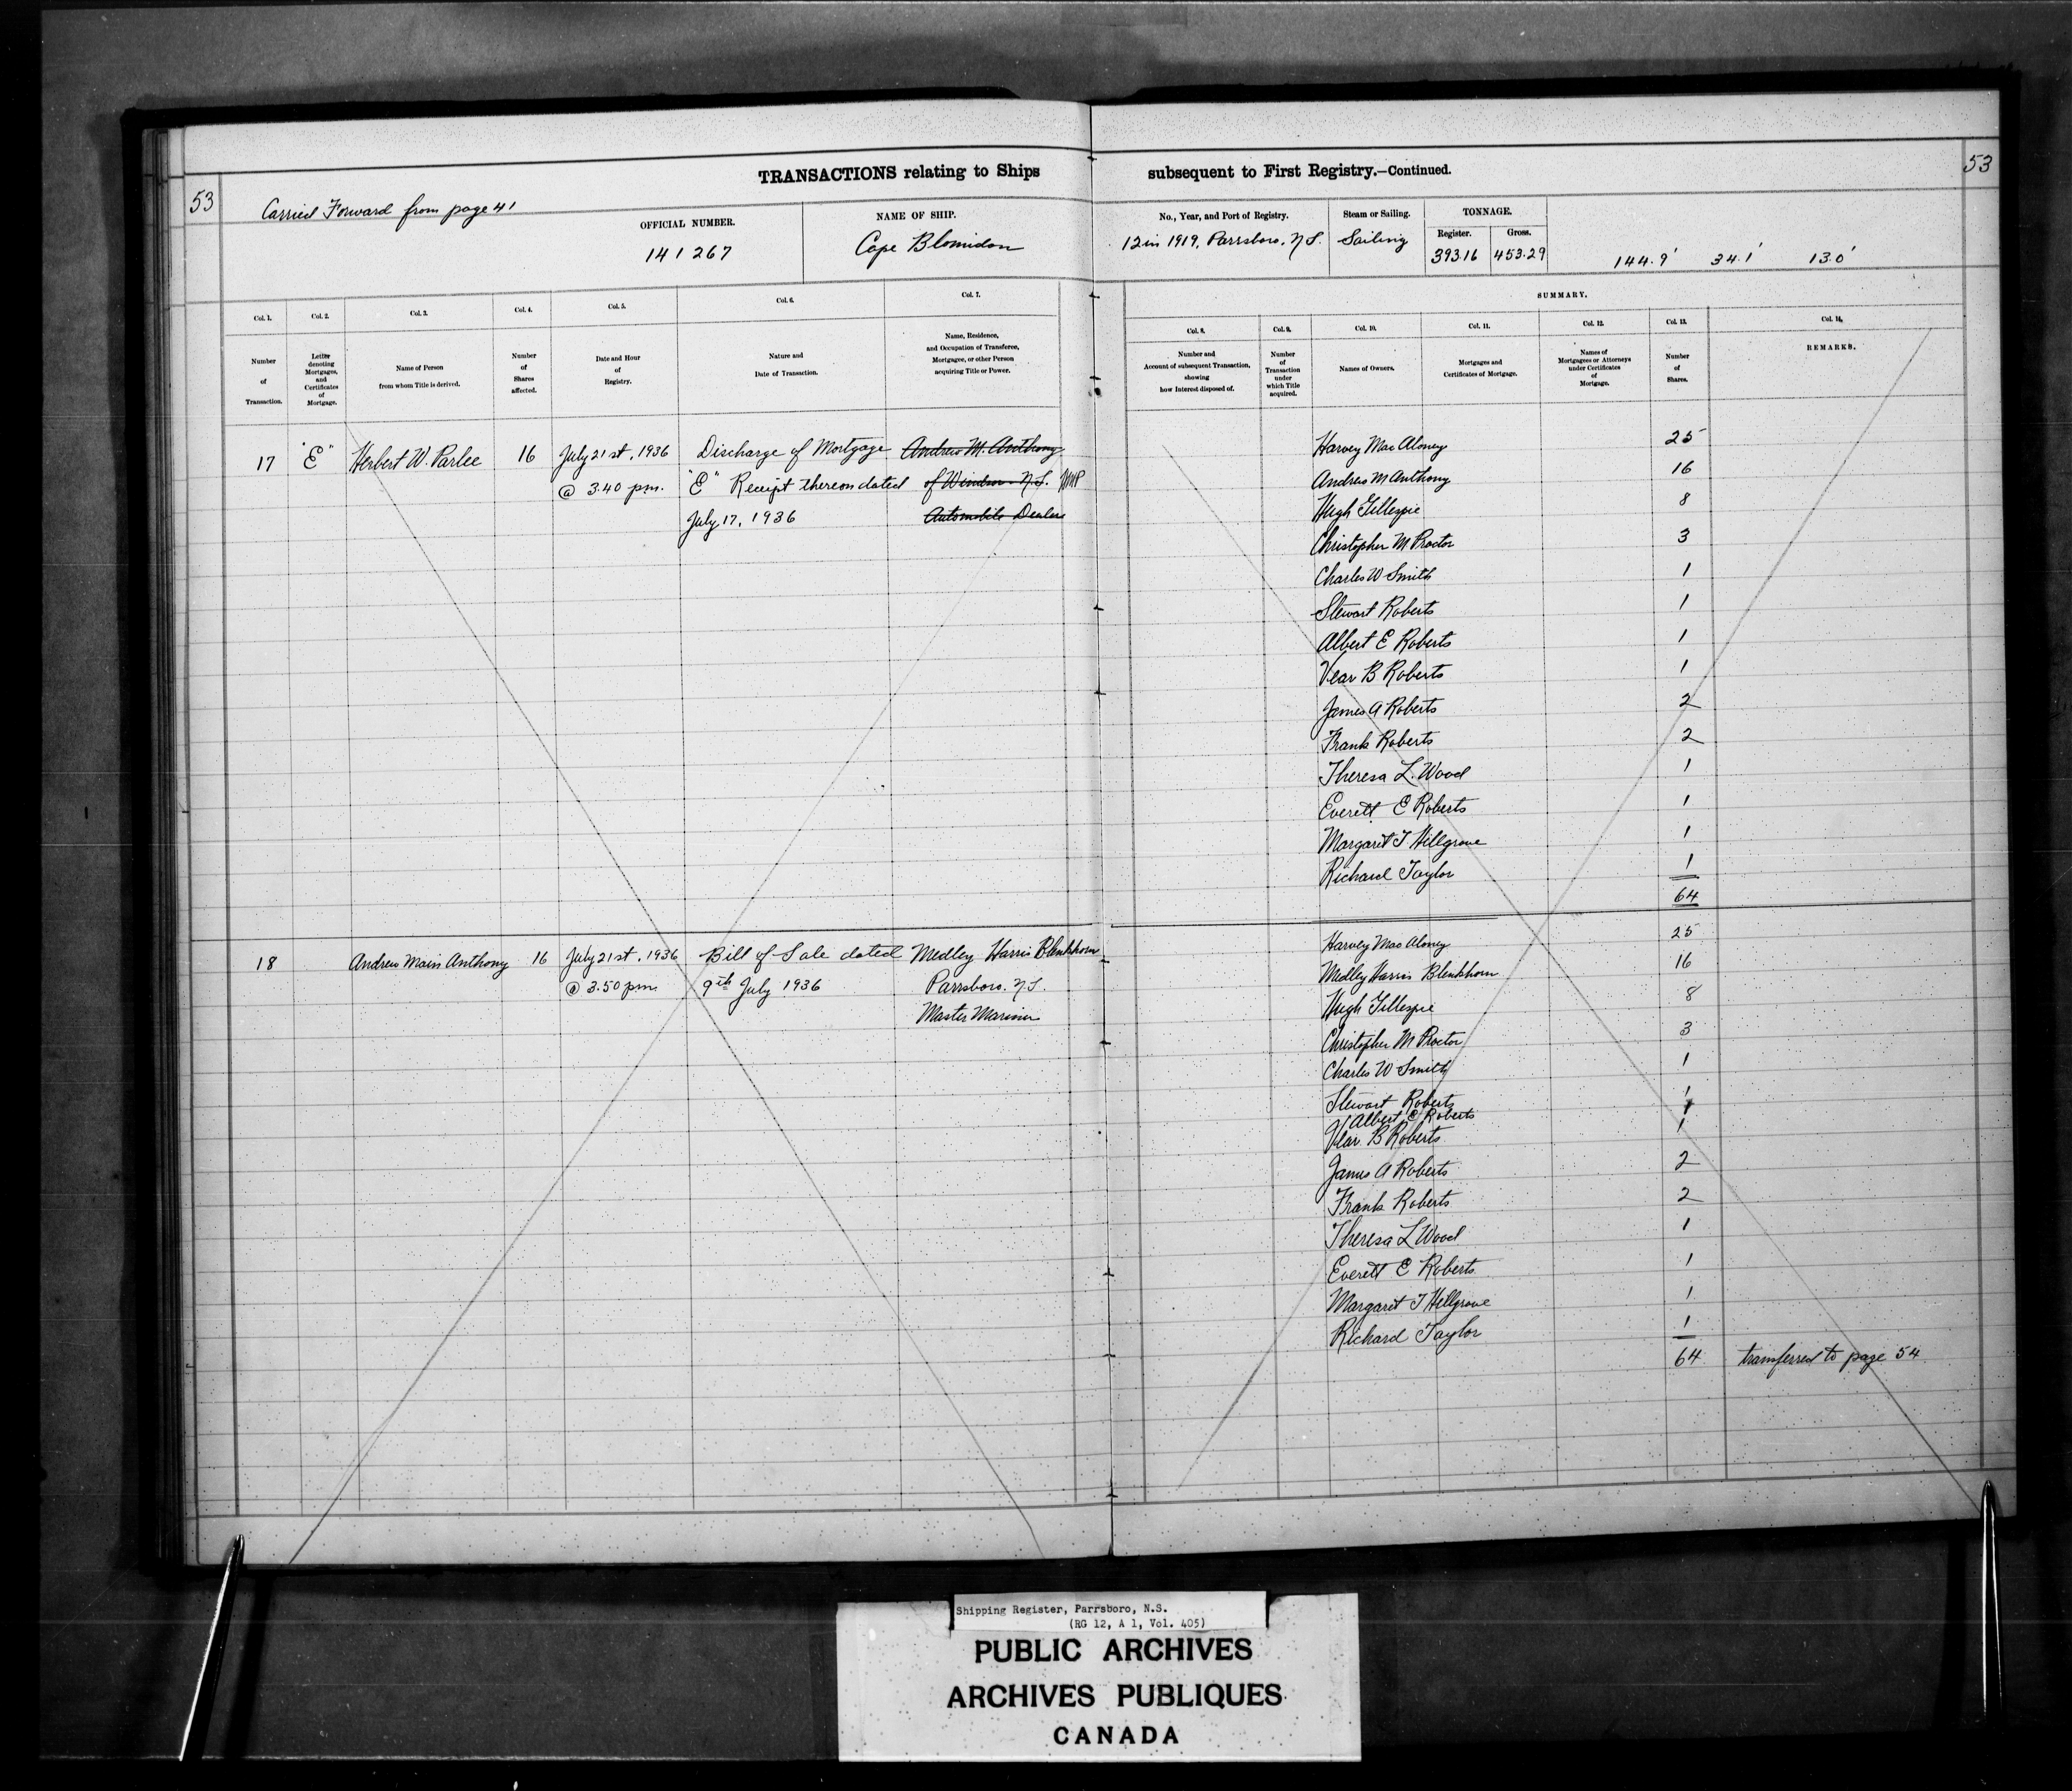 TRANSACTIONS relating to Ships subsequent to First Registry.—Continued.
53
53
Carried Forward from page 41
OFFICIAL NUMBER.
141267
NAME OF SHIP.
Cape Blomidon
No., Year, and Port of Registry.
12 in 1919, Parrsboro, N.S.
Steam or Sailing.
Sailing
TONNAGE.
Register.
393.16
Gross.
453.29
144.9' 34.1' 13.0'
SUMMARY.
Col. 1.
Number
of
Transaction.
Col. 2.
Letter
denoting
Mortgages,
and
Certificates
of
Mortgage.
Col. 3.
Name of Person
from whom Title is derived.
Col. 4.
Number
of
Shares
affected.
Col. 5.
Date and Hour
of
Registry.
Col. 6.
Nature and
Date of Transaction.
Col. 7.
Name, Residence,
and Occupation of Transferee,
Mortgagee, or other Person
acquiring Title or Power.
Col. 8.
Number and
Account of subsequent Transaction,
showing
how Interest disposed of.
Col. 9.
Number
of
Transaction
under
which Title
acquired.
Col. 10.
Names of Owners.
Col. 11.
Mortgages and
Certificates of Mortgage.
Col. 12.
Names of
Mortgagees or Attorneys
under Certificates
of
Mortgage.
Col. 13.
Number
of
Shares.
Col. 14.
REMARKS.
17 "E" Herbert W. Parlee 16 July 21st, 1936 Discharge of Mortgage Andrew M. Anthony
@ 3.40 pm. "E" Receipt thereon dated of Windsor N.S.
July 17, 1936 Automobile Dealer
Harvey MacAloney 25
Andrew M Anthony 16
Hugh Gillespie 8
Christopher M Proctor 3
Charles W Smith 1
Stewart Roberts 1
Albert E Roberts 1
Vear B Roberts 1
James A Roberts 2
Frank Roberts 2
Theresa L. Wood 1
Everett E Roberts 1
Margaret T Hillgrove 1
Richard Taylor 1
64
18 Andrew Main Anthony 16 July 21st, 1936 Bill of Sale dated Medley Harris Blenkhorn
@ 3.50 pm. 9th July 1936 Parrsboro. N.S.
Master Mariner
Harvey MacAloney 25
Medley Harris Blenkhorn 16
Hugh Gillespie 8
Christopher M Proctor 3
Charles W Smith 1
Stewart Roberts 1
Albert E Roberts 1
Vear B Roberts 1
James A Roberts 2
Frank Roberts 2
Theresa L Wood 1
Everett E Roberts 1
Margaret T Hillgrove 1
Richard Taylor 1
64 transferred to page 54
Shipping Register, Parrsboro, N.S.
(RG 12, A 1, Vol. 405)
PUBLIC ARCHIVES
ARCHIVES PUBLIQUES
CANADA